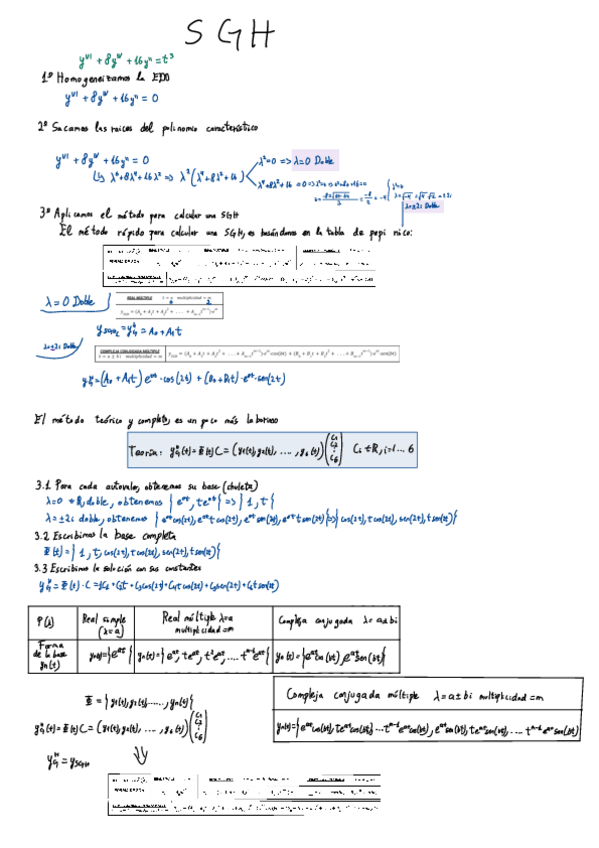 SGH
y^VI + 8y^IV + 16y^II = t^3
1º Homogeneizamos la EDO
y^VI + 8y^IV + 16y^II = 0
2º Sacamos las raices del polinomio característico
y^VI + 8y^IV + 16y^II = 0
λ^6+8λ^4+16λ^2 => λ^2(λ^4+8λ^2+16)
λ^2=0 => λ=0 Doble
λ=±2i Doble
3º Aplicamos el método para calcular una SGH
El método rápido para calcular una SGH, es basándonos en la tabla de pepi nico:
λ=0 Doble
REAL MÚLTIPLE
= A0 + A1t
λ=±2i Doble
COMPLEJA CONJUGADA MÚLTIPLE
(A0 + A1t) e^0t · cos(2t) + (B0+B1t) · e^0t · sen(2t)
El método teórico y completo, es un poco más laborioso
Teoría: y_G^H(t) = Φ(t) C = (y1(t), y2(t), ...., y6(t)) (C1 C2 ⋮ C6) Ci ∈ R, i=1... 6
3.1 Para cada autovalor, obtenemos su base (chuleta)
λ=0 ∈ R, doble, obtenemos {e^0t, te^0t} => {1, t}
λ=±2i doble, obtenemos {e^0t cos(2t), e^0t t cos(2t), e^0t sen(2t), e^0t t sen(2t)} => {cos(2t), t cos(2t), sen(2t), t sen(2t)}
3.2 Escribimos la base completa
Φ(t) = {1, t, cos(2t), t cos(2t), sen(2t), t sen(2t)}
3.3 Escribimos la solución con sus constantes
y_G^H = Φ(t) · C = 1C1 + C2t + C3cos(2t) + C4t cos(2t) + C5sen(2t) + C6t sen(2t)
P(λ) Real simple (λ=a) Real múltiple λ=a multiplicidad=m Compleja conjugada λ=a±bi
Forma de la base yn(t) yn(t)={e^at} yn(t)={e^at, te^at, t^2e^at, .... t^m-1 e^at} yn(t)={e^at cos(bt), e^at sen(bt)}
Φ = {y1(t), y2(t), ......, yn(t)}
Compleja conjugada múltiple λ=a±bi multiplicidad=m
y_G^H(t) = Φ(t) C = (y1(t), y2(t), ...., y6(t)) (C1 C2 ⋮ C6)
yn(t)={e^at cos(bt), te^at cos(bt) ... t^m-1 e^at cos(bt), e^at sen(bt), te^at sen(bt), .... t^m-1 e^at sen(bt)}
y_G^H = y_SGH